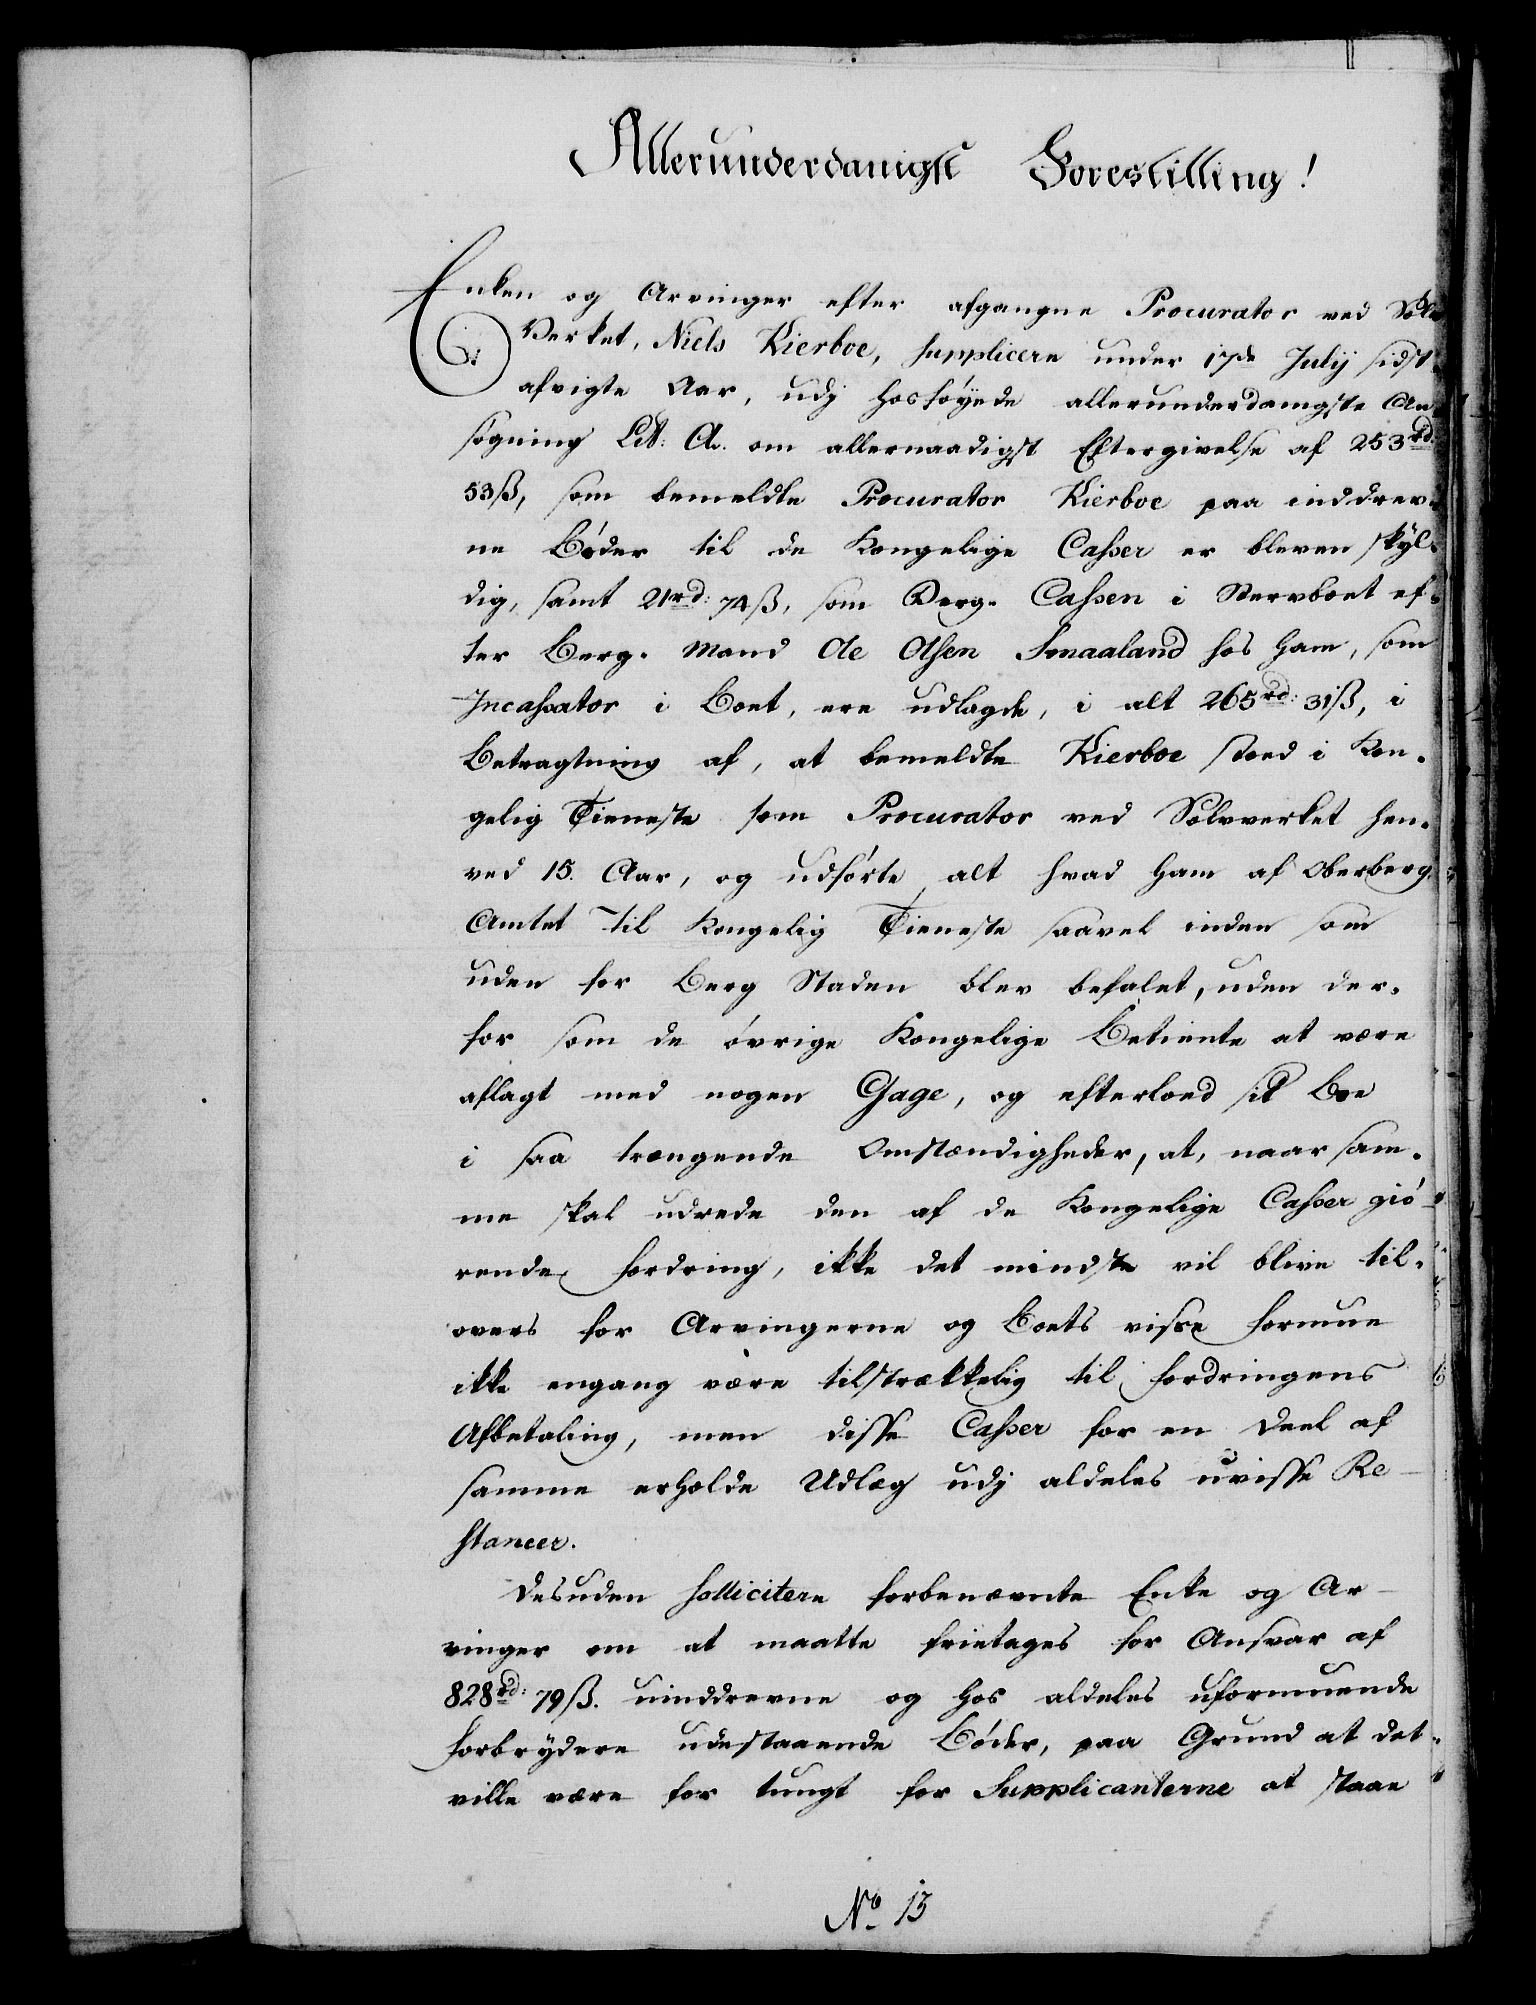 Allerunderdanigst Forestilling!
Enken og Arvinger efter afgangne Procurator ved Sølv
Verket, Niels Kierboe, supplicere under 17de Julij sidst-
afvigte Aar, udj hosføyede allerunderdanigste An-
søgning Lit: A. om allernaadigst Eftergivelse af 253rd:
53ß, som bemeldte Procurator Kierboe paa inddrev-
ne Bøder til de Kongelige Casser er bleven skyl-
dig, samt 21rd: 74ß, som Berg-Cassen i Stervboet ef-
ter Berg-Mand Ole Olsen Smaaland hos ham, som
Incassator i Boet, ere udlagde, i alt 265rd: 31ß, i
Betragtning af, at bemeldte Kierboe stoed i Kon-
gelig Tieneste som Procurator ved Sølvverket hen-
ved 15. Aar, og udførte alt hvad ham af Oberberg-
Amtet til Kongelig Tieneste saavel inden som
uden for Berg Staden blev befalet, uden der-
for som de øvrige Kongelige Betiente at være
aflagt med nogen Gage, og efterloed sit Boe
i saa trængende Omstændigheder, at, naar sam-
me skal udrede den af de Kongelige Casser giö-
rende Fordring, ikke det mindste vil blive til-
overs for Arvingerne og Boets visse Formue
ikke engang være tilstrækkelig til Fordringens
Afbetaling, men disse Casser for en Deel af
samme erholde Udlæg udj aldeles uvisse Re-
stancer.
Desuden sollicitere forbenævnte Enke og Ar-
vinger om at maatte frietages for Ansvar af
828rd: 79ß. uinddrevne og hos aldeles uformuende
Forbrydere udestaaende Bøder, paa Grund at det
ville være for tungt for Supplicanterne at staae
No 13